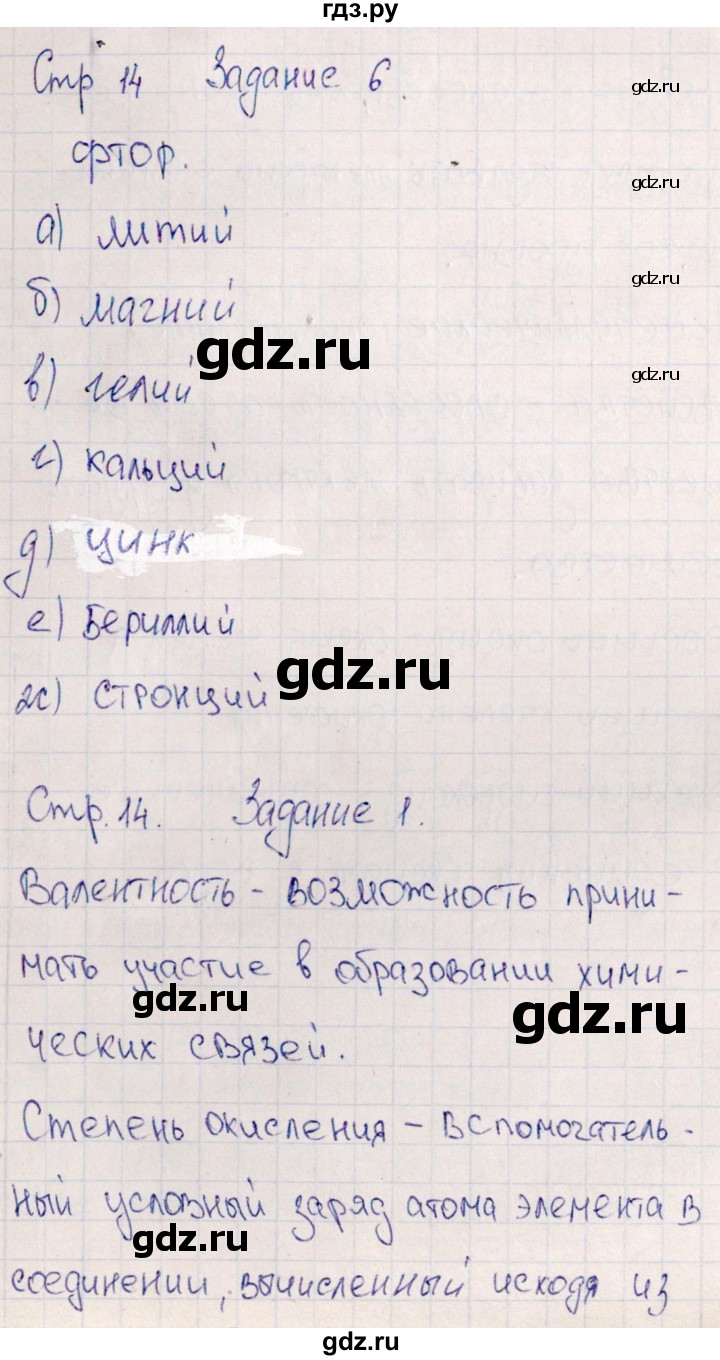 гдз.ру
Стр 14 Задание 6
gdz.ru
фтор.
gdz.ru
а) литий
б) магний
gdz.ru
gdz.ru
в) гелий
gdz.ru
г) кальций
д) цинк
е) Бериллий
gdz.ru
ж) стронций
Стр. 14. Задание 1.
Валентность - возможность прини-
мать участие в образовании хими-
gdz.ru
gdz.ru
ческих связей.
Степень окисления - вспомогатель-
ный условный заряд атома элемента в
gdz.ru
соединении, вычисленный исходя из
gdz.ru